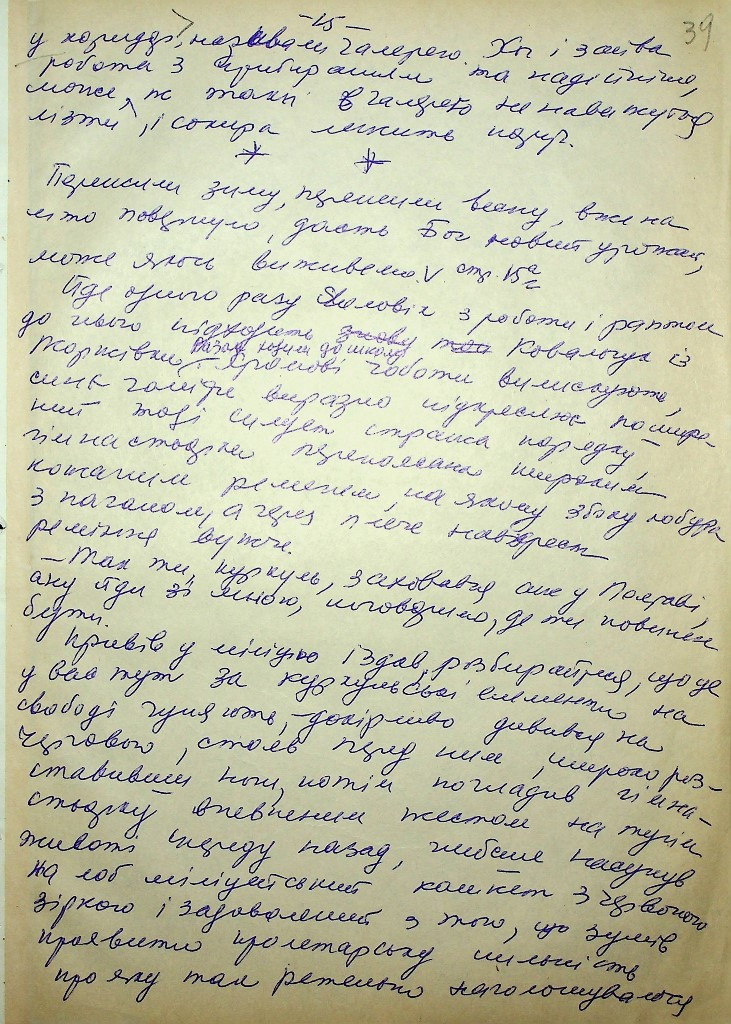 -15-
39
у коридорі, називали галереєю. Хоч і зайва
робота з прибиранням та надійніше,
може ж таки в галерею не наважуться
лізти, і сокира лежить поруч.
Перенесли зиму, перенесли весну, вже на
літо повернуло, дасть Бог новий урожай,
може якось виживемо. V стр. 15а
Йде одного разу чоловік з роботи і раптом
до нього підходить Ковальчук із
Жорківки, разом ходили до школи. Хромові чоботи вилискують,
синє галіфе виразно підкреслює пошире-
ний тоді силует стража порядку,
гімнастьорка переповзана широким
кожаним ременем, на якому збоку кобура
з наганом, а через плече навхрест
ремінця вужче.
– Так ти, куркуль, заховався аж у Полтаві,
ану йди зі мною, поговоримо, де ти повинен
бути.
Привів у міліцію і здав, розбирайтеся, що це
у вас тут за куркульські елементи на
свободі гуляють, – докірливо дивився на
чергового, стояв перед ним, широко роз-
ставивши ноги, потім погладив гімна-
стьорку впевненим жестом на тугім
животі спереду назад, глибше насунув
на лоб міліцейський кашкет з червоною
зіркою і задоволений з того, що зумів
проявити пролетарську пильність
про яку так ретельно наголошувалося